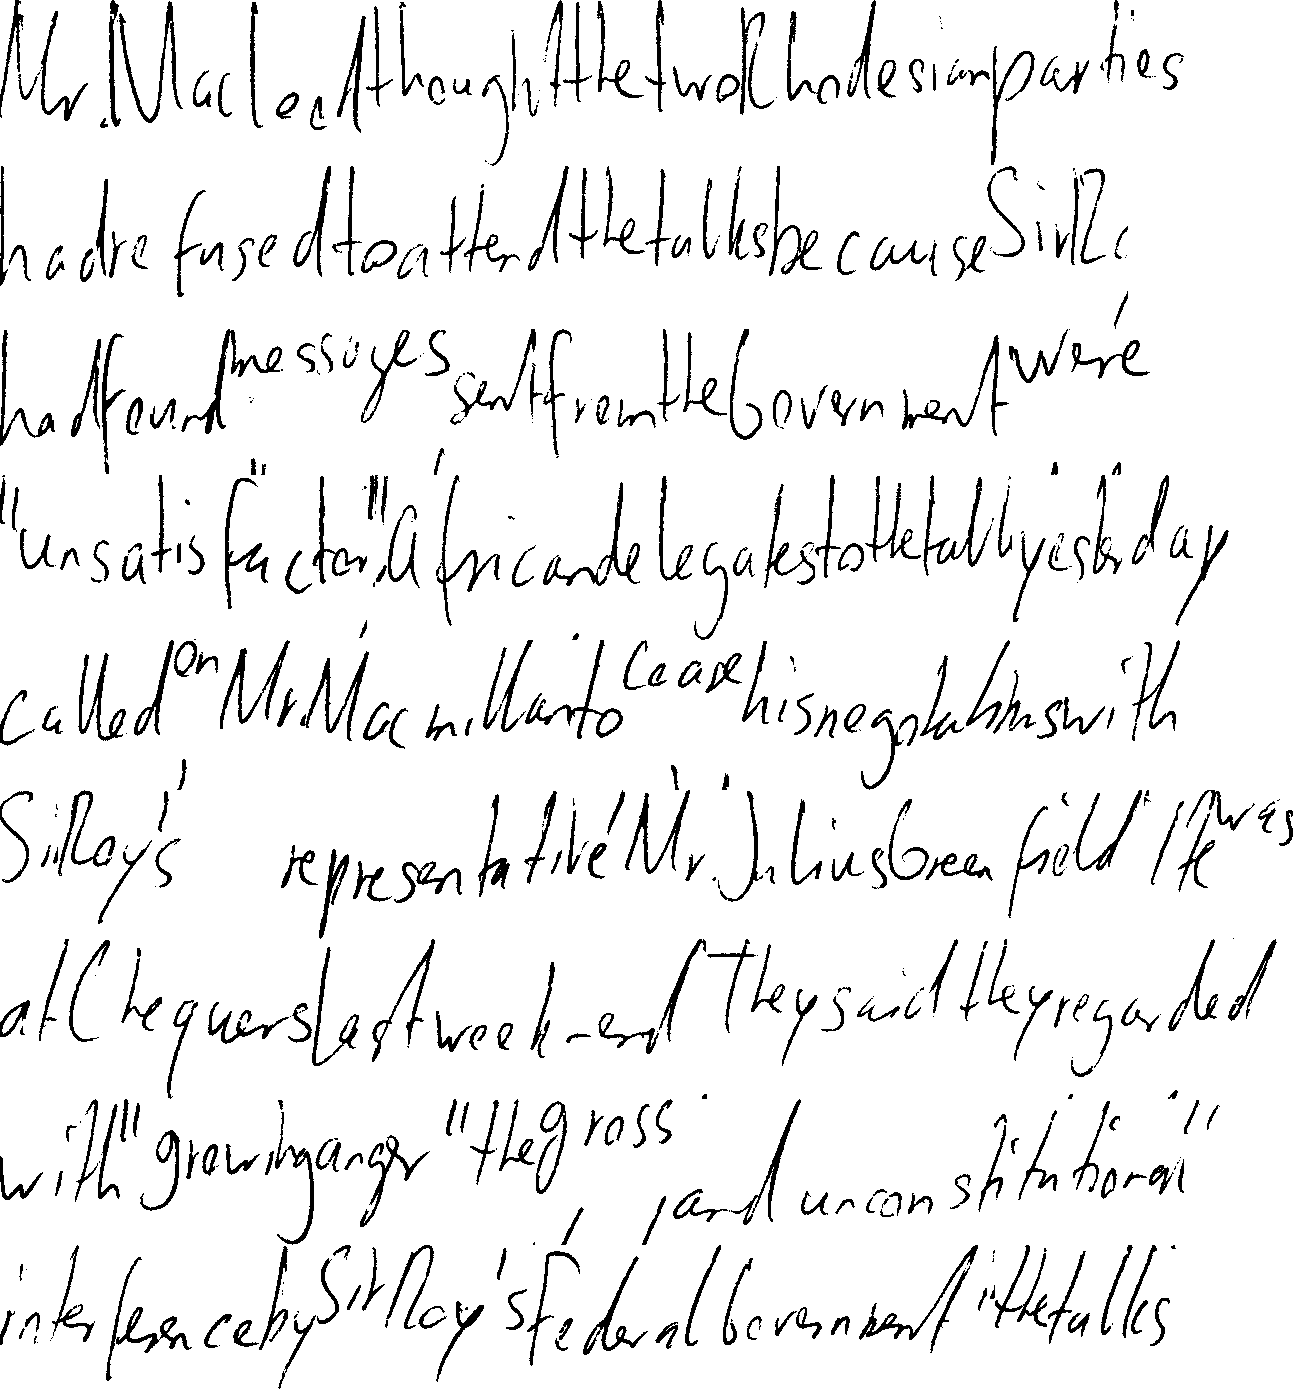 Mr. Macleod thought the two Rhodesian parties
had refused to attend the talks because Sir
had found messages sent from the Government were
"unsatisfactor". African delegates to the talk yesterday
called on Mr. Macmillan to cease his negotiations with
Sir Roy's representative Mr. Julius Greenfield
was
at Chequers last week-end They said they regarded
with "growing anger" the gross
, and unconstitutional"
interference by Sir Roy's Federal Government in the talks